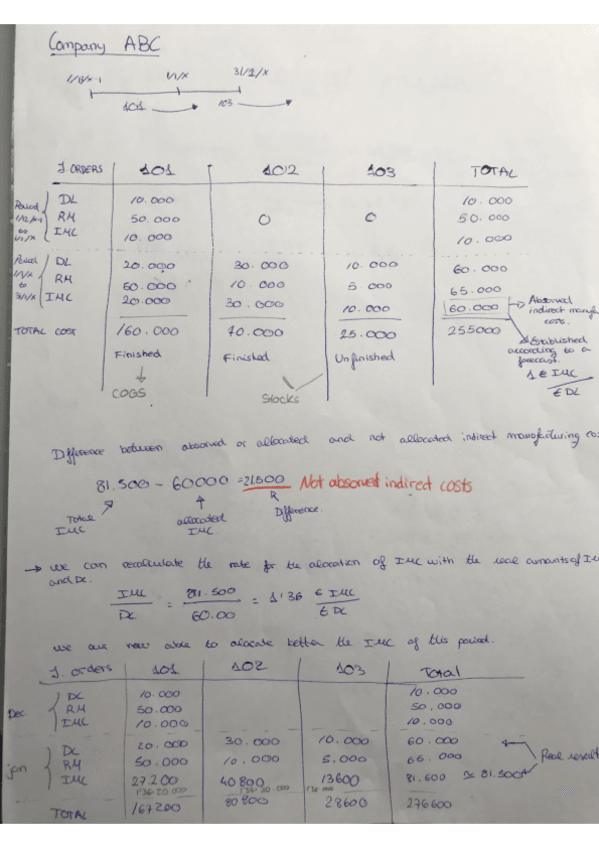 Company ABC
1/1/X 31/12/X
101 103
J. ORDERS 101 102 103 TOTAL
Period DL 10.000 10.000
RM 50.000 0 0 50.000
to IMC 10.000 10.000
1/1/X
Period DL 20.000 30.000 10.000 60.000
1/1/X RM 50.000 10.000 5.000 65.000
to IMC 20.000 30.000 10.000 60.000 → Absorbed
31/1/X indirect manuf.
costs.
TOTAL COST 160.000 70.000 25.000 255000
Finished Finished Unfinished
Established
according to a
forecast.
COGS Stocks
1 € IMC
€ DL
Difference between absorbed or allocated and not allocated indirect manufacturing
81.500 - 60000 = 21.500 Not absorbed indirect costs
Total IMC allocated IMC. Difference.
→ We can recalculate the rate for the alocation of IMC with the real amounts of
and DL.
IMC = 81.500 = 1'36 € IMC
DL 60.00 € DL
We are now able to alocate better the IMC of this period.
J. orders 101 102 103 Total
DL 10.000 10.000
Dec RM 50.000 50.000
IMC 10.000 10.000
DL 20.000 30.000 10.000 60.000
jan RM 50.000 10.000 5.000 65.000 Real result
IMC 27.200 40800 13600 81.600 ≃ 81.500
1'36·20.000 1'36·30.000
TOTAL 167200 80800 28600 276600